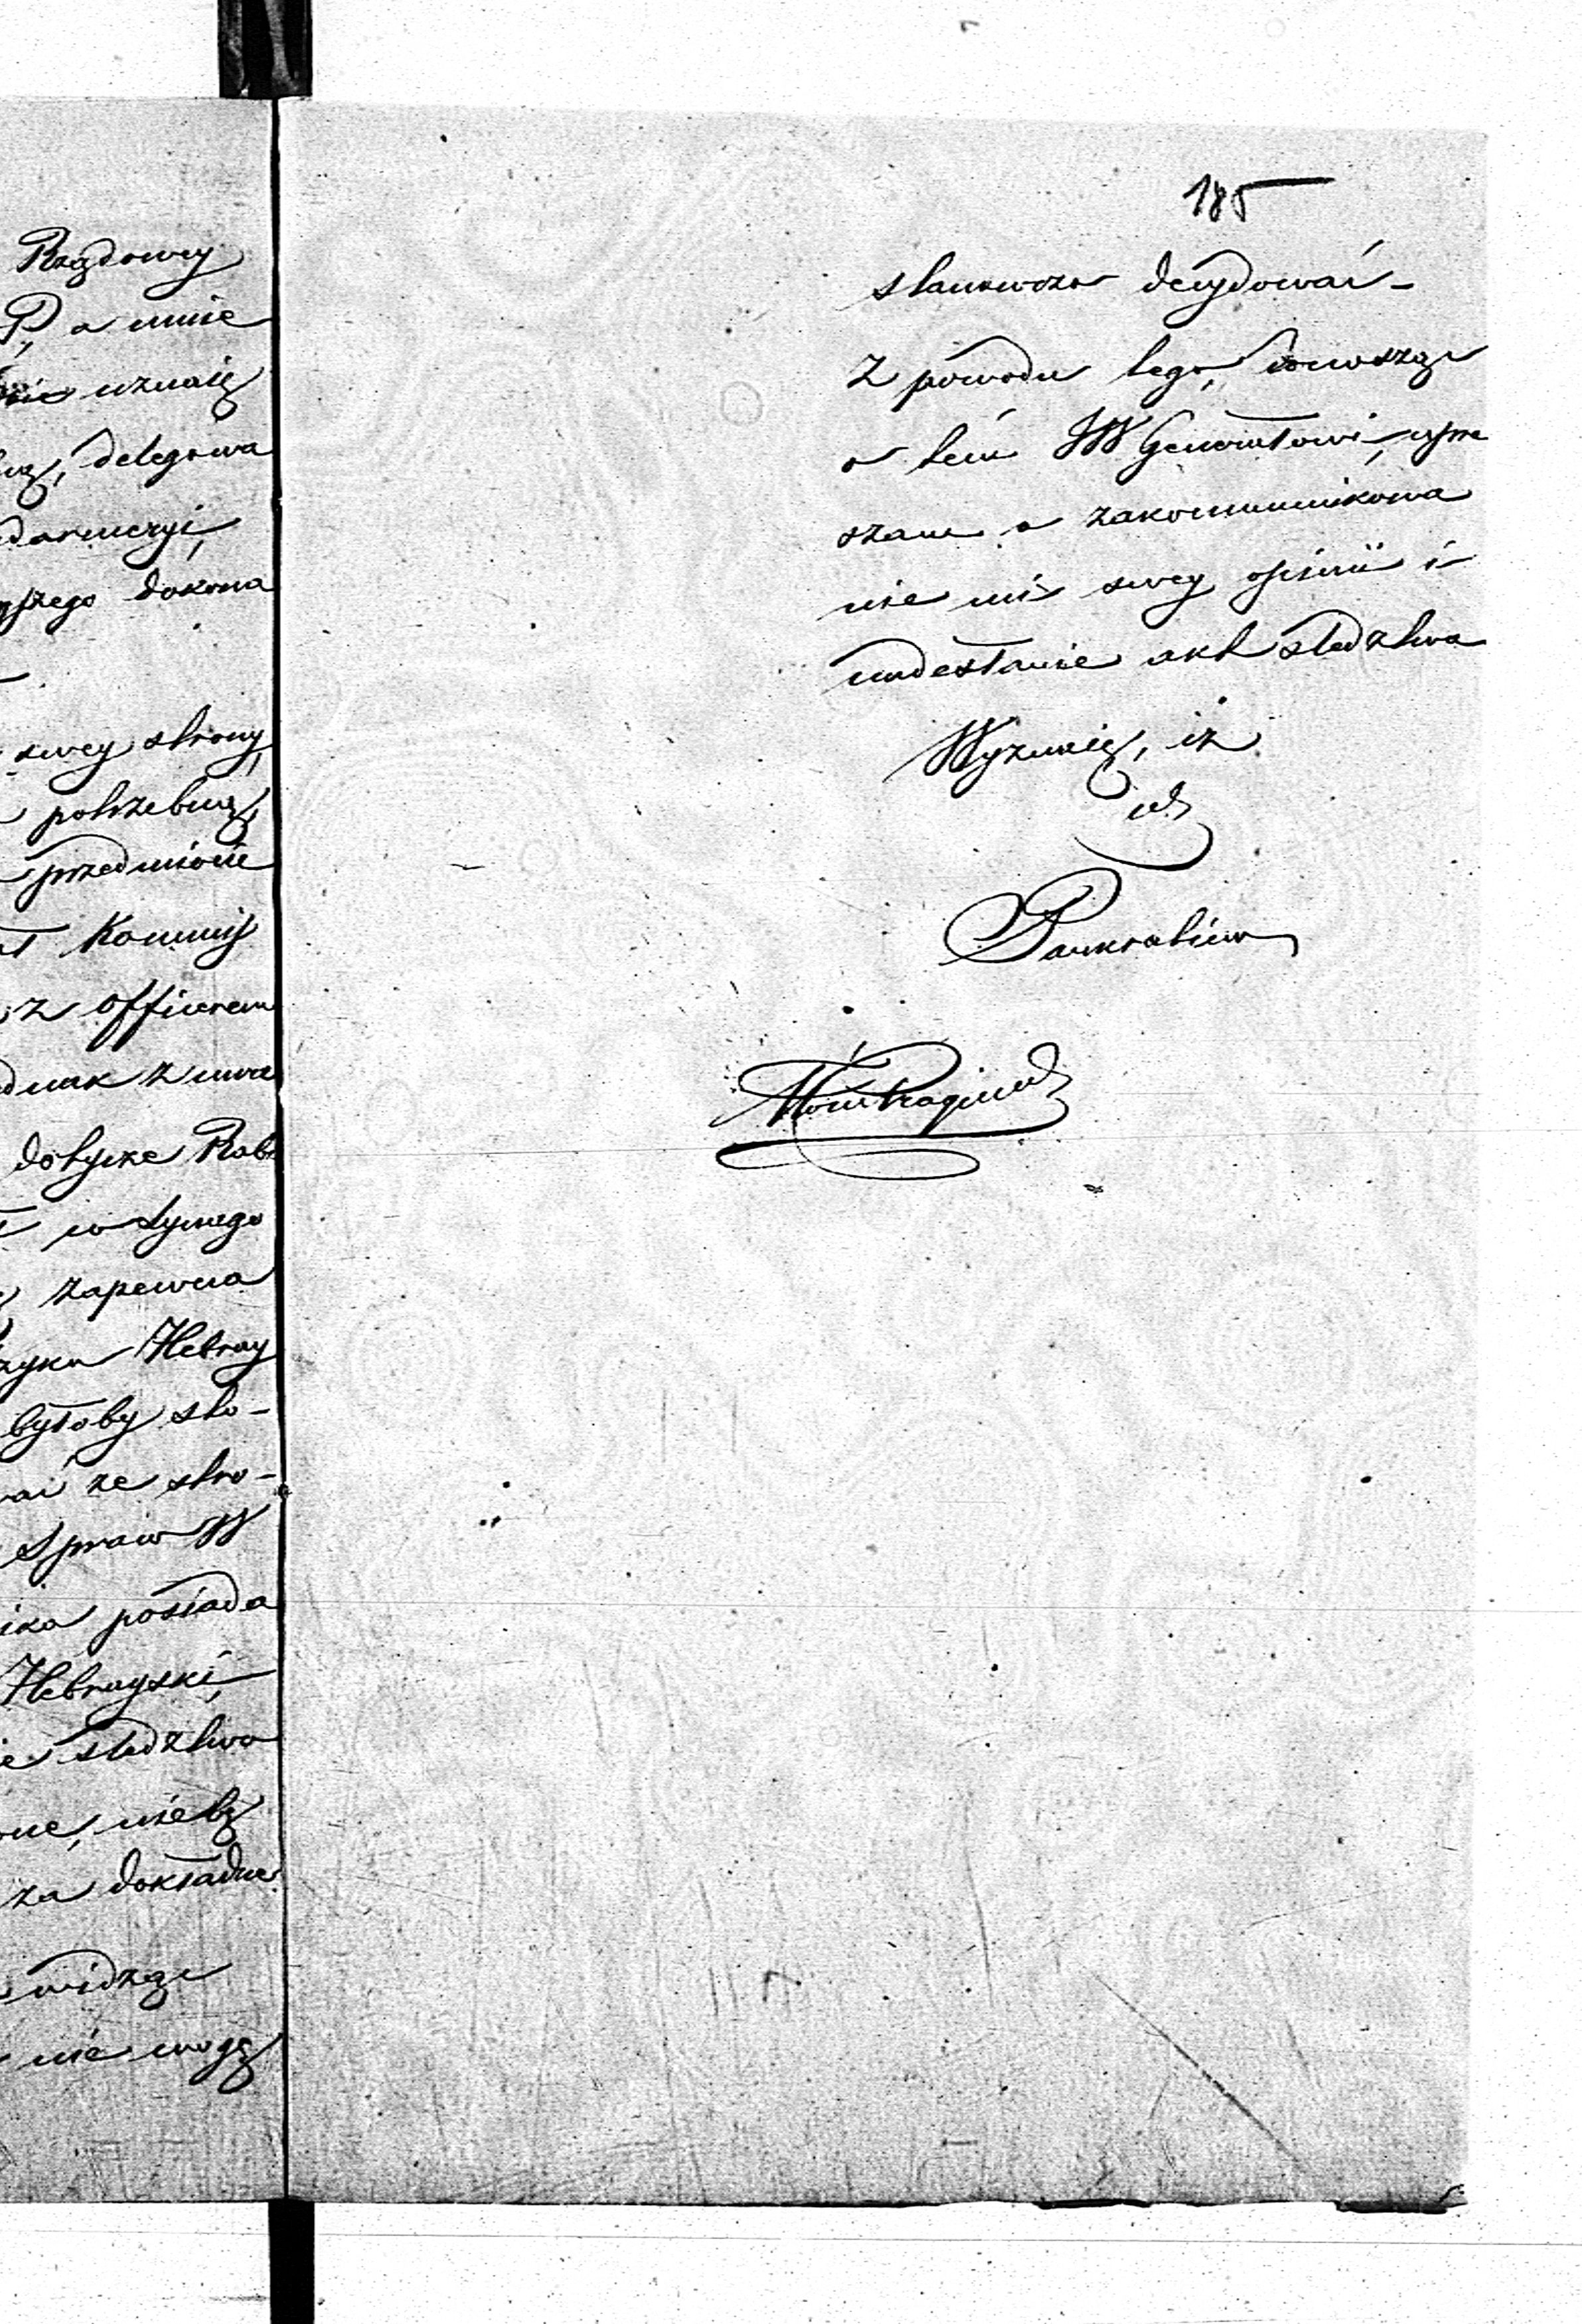 Rządowey
P, a mnie
uznaię
delegowa
darmeryi,
dokona
swey strony,
potrzebną,
przedmiocie
Kommiss
z officerem
dnak z uwa
dotycze Rab
w Lymego
zapewna
zyka Hebray
byłoby sto-
ze stro-
Spraw W
ika posiada
Hebrayski,
śledztwo
nieby
za dokładne
widząc
nie mogę
185
stanowczo decydować -
Z powodu tego, donosząc
o tém JW Generałowi, upra
szam o zakommunikowa
nie mi swey opinii i
nadesłanie akt śledztwa
Wyznaię, iż
Pankratiew